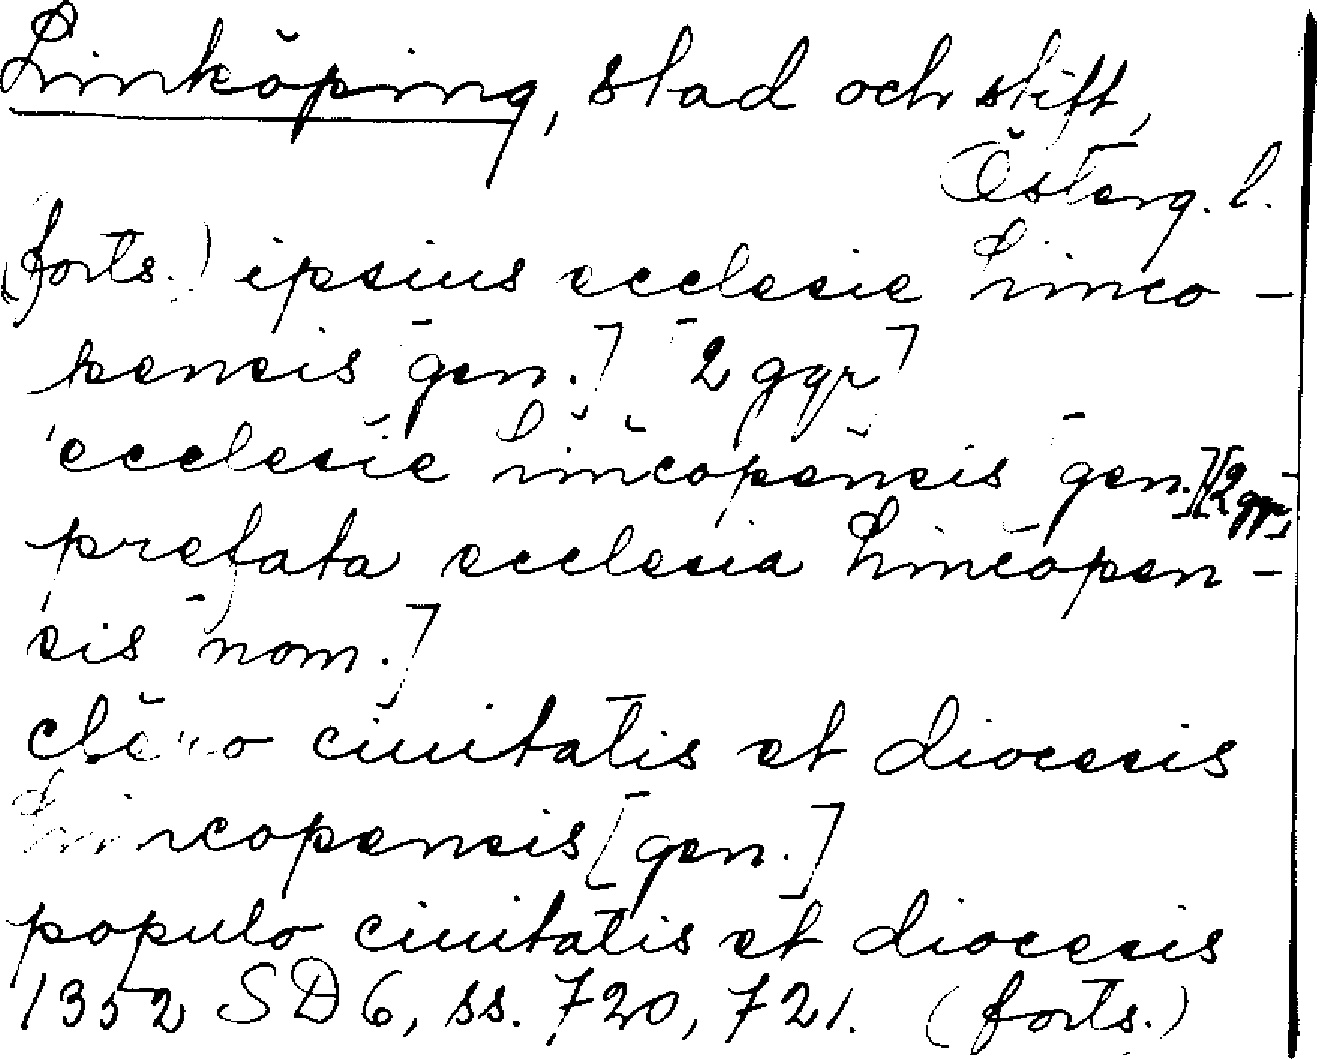 Linköping, stad och stift,
Österg. l.
(forts.) ipsius ecclesie Linco-
pensis gen.] [2 ggr]
ecclesie lincopensis [gen.] [2 ggr]
prefata ecclesia Lincopen-
sis [nom.]
clero ciuitatis et diocesis
Lincopensis [gen.]
populo ciuitatis et diocesis
1352 SD 6, ss. 720, 721. (forts.)